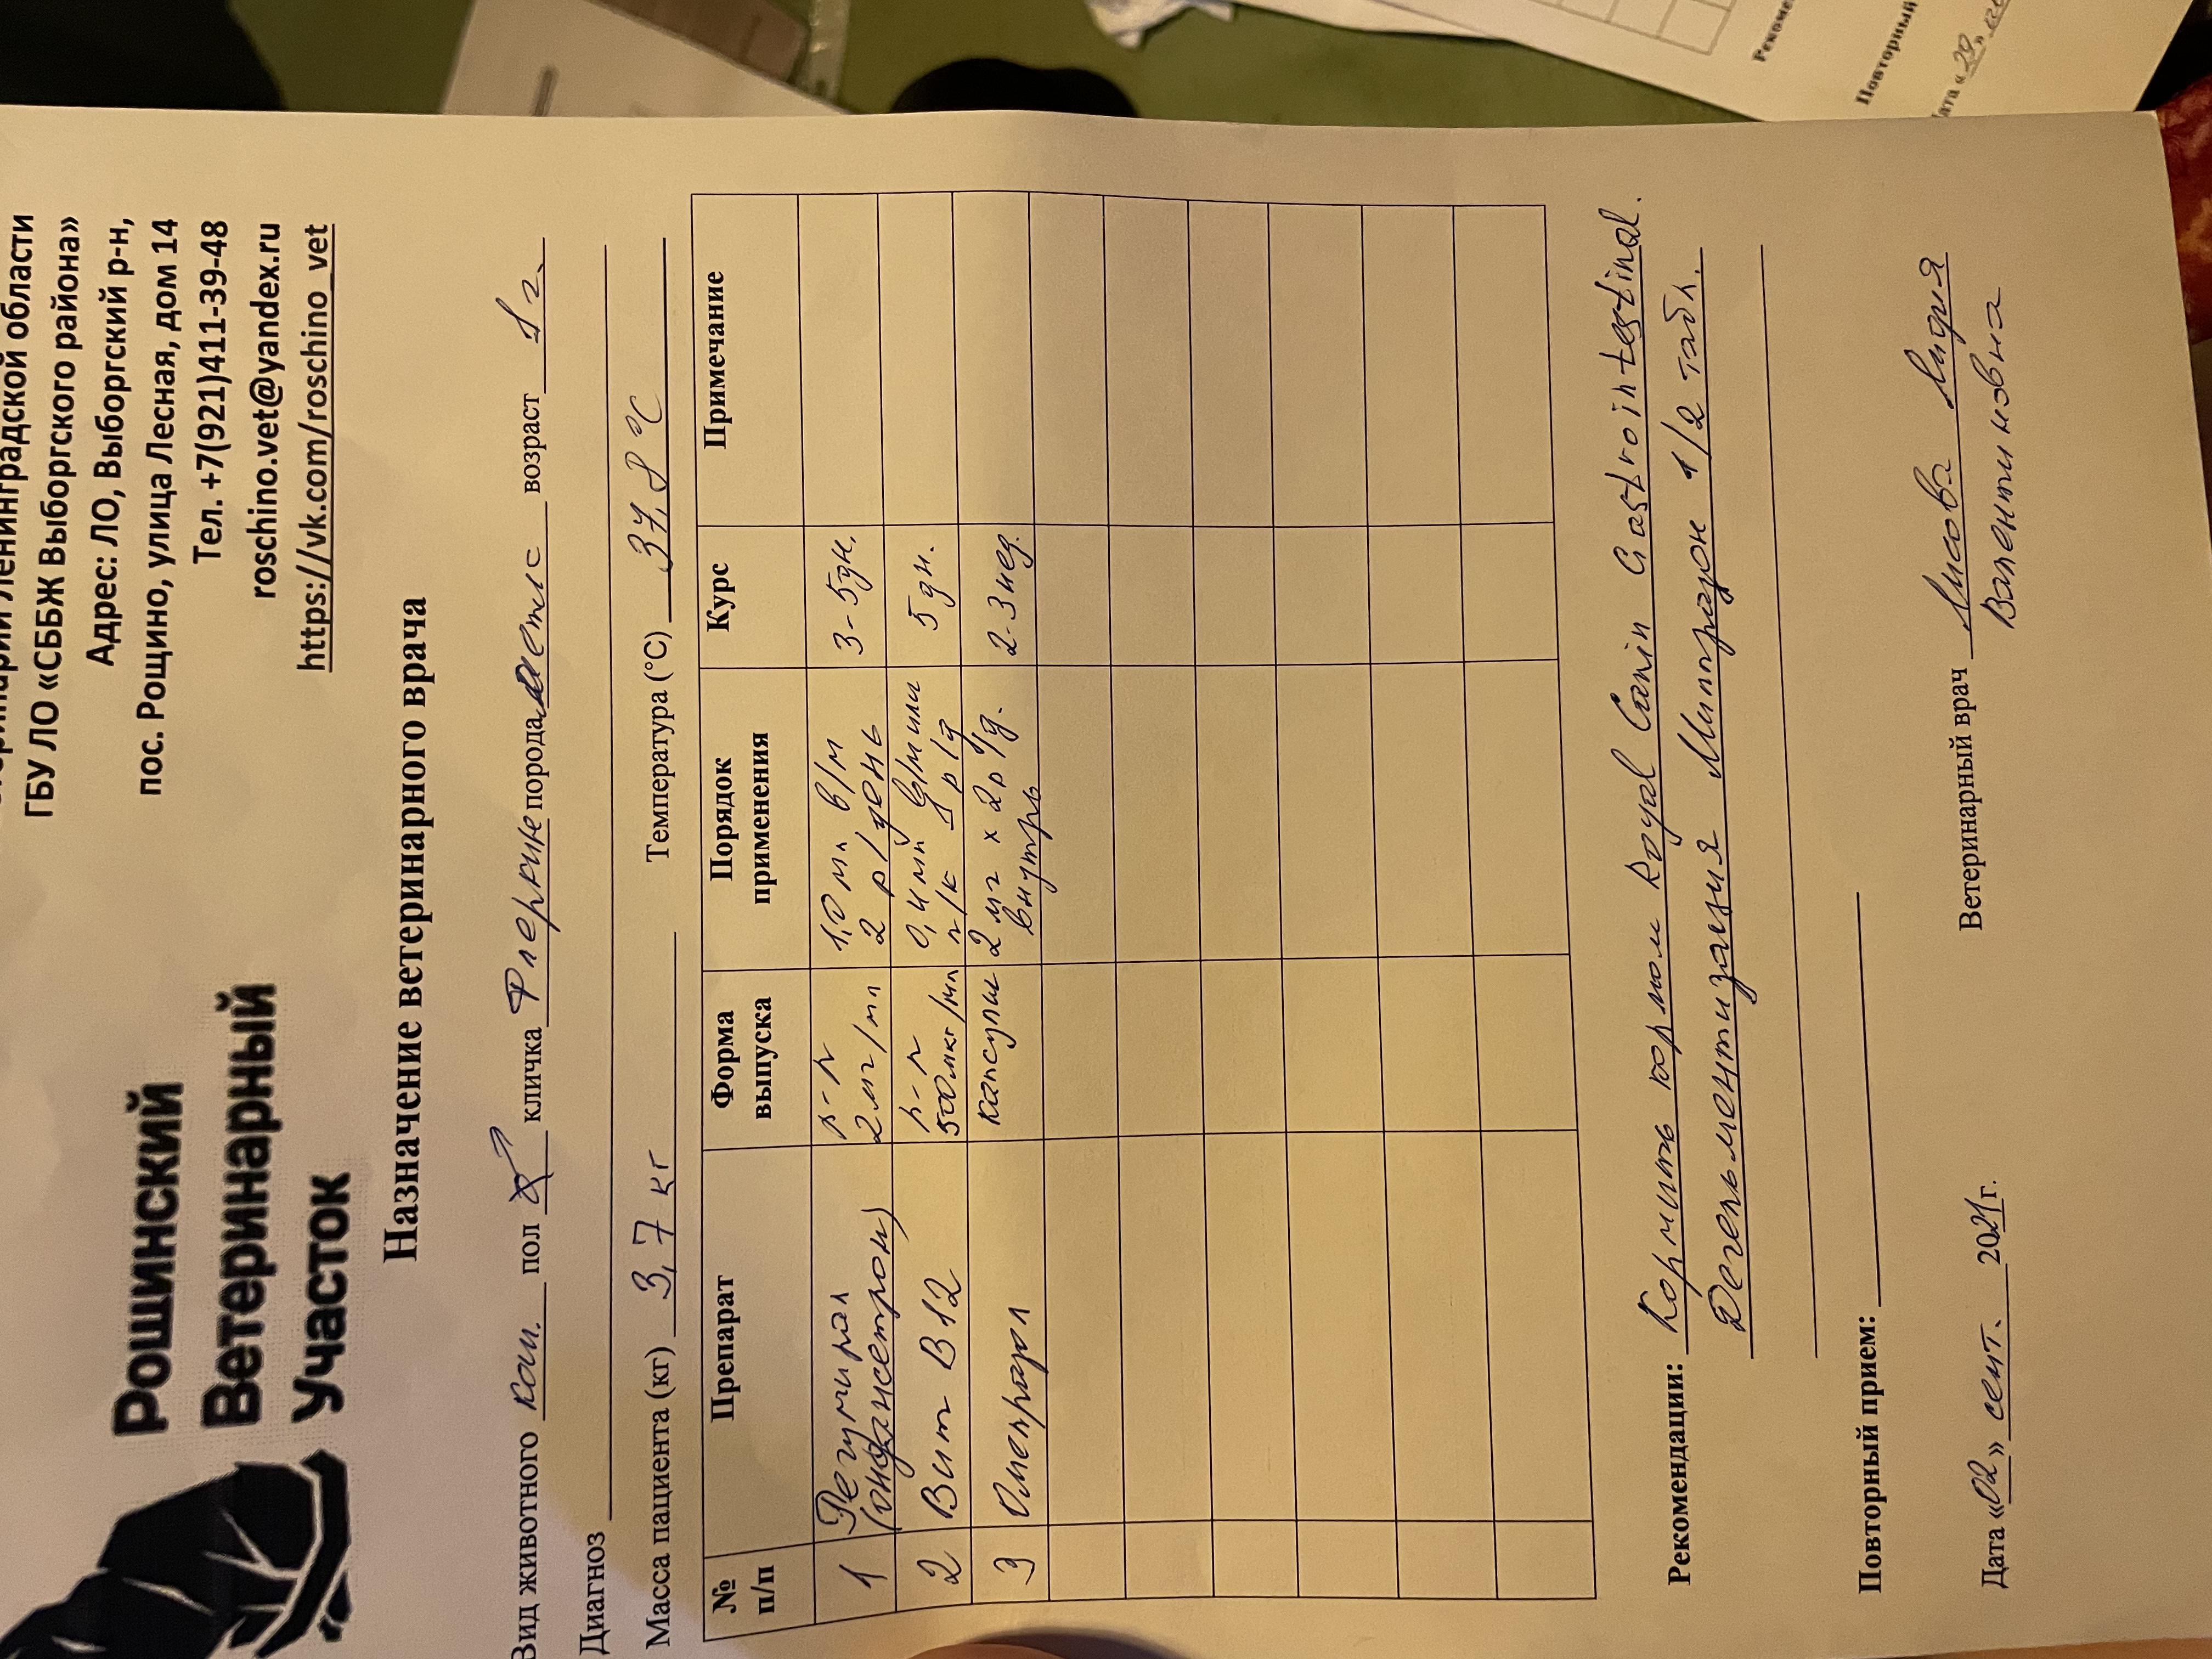 Рощинский
Ветеринарный
Участок
Ленинградской области
ГБУ ЛО «СББЖ Выборгского района»
Адрес: ЛО, Выборгский р-н,
пос. Рощино, улица Лесная, дом 14
Тел. +7(921)411-39-48
roschino.vet@yandex.ru
https://vk.com/roschino_vet
Назначение ветеринарного врача
Вид животного кош. пол ♂ кличка порода метис возраст 1 г.
Диагноз
Масса пациента (кг) 3,7 кг Температура (°С) 37,8 °C
№ п/п Препарат Форма выпуска Порядок применения Курс Примечание
1 (ондансетрон) р-р 2 мг/мл 1,0 мл в/м 2 р/день 3-5 дн.
2 Вит B12 р-р 500 мкг/мл 0,4 мл в/м или п/к 1 р/д 5 дн.
3 Омепразол капсулы 2 мг х 2р/д. внутрь 2-3 нед.
Рекомендации: Кормить кормом Royal Canin Gastrointestinal.
Дегельментизация Милпразон 1/2 табл.
Повторный прием:
Дата «02» сент. 2021г. Ветеринарный врач Лидия
Валентиновна
Рекоме
Повторный
Дата «29»